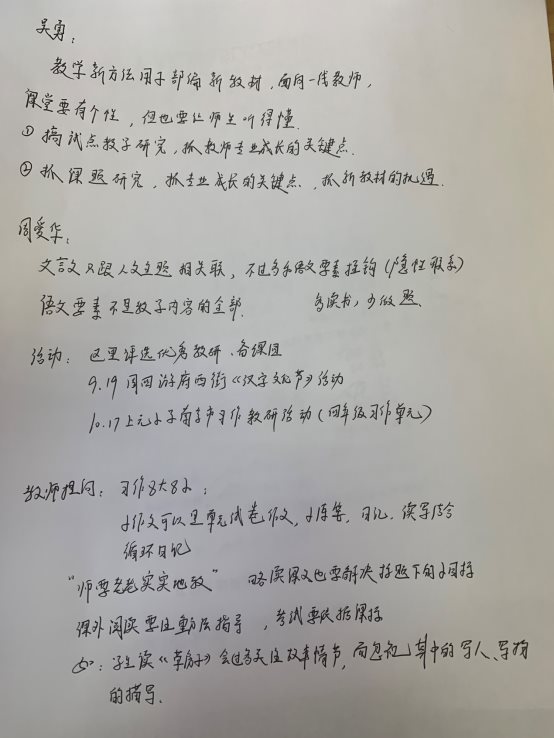 吴勇：
教学新方法用于部编新教材，面向一线教师，
课堂要有个性，但也要让师生听得懂.
① 搞试点教学研究，抓教师专业成长的关键点.
② 抓课题研究，抓专业成长的关键点、抓新教材的机遇.
周爱华：
文言文只跟人文主题相关联，不过多和语文要素挂钩（隐性联系）
语文要素不是教学内容的全部. 多读书，少做题、
活动： 这里评选优秀教研、备课组
9.19 周四游府西街《汉字文化节》活动
10.17 上元小学南京市习作教研活动（四年级习作单元）
教师提问： 习作8大8小：
小作文可以是单元试卷作文，小练笔，日记，读写结合
循环日记
“师要老老实实地教” 略读课文也要解决提示下的小目标
课外阅读要注重方法指导，考试要依据课标
如：学生读《草房子》会过多关注故事情节，而忽视了其中的写人、写物
的描写、